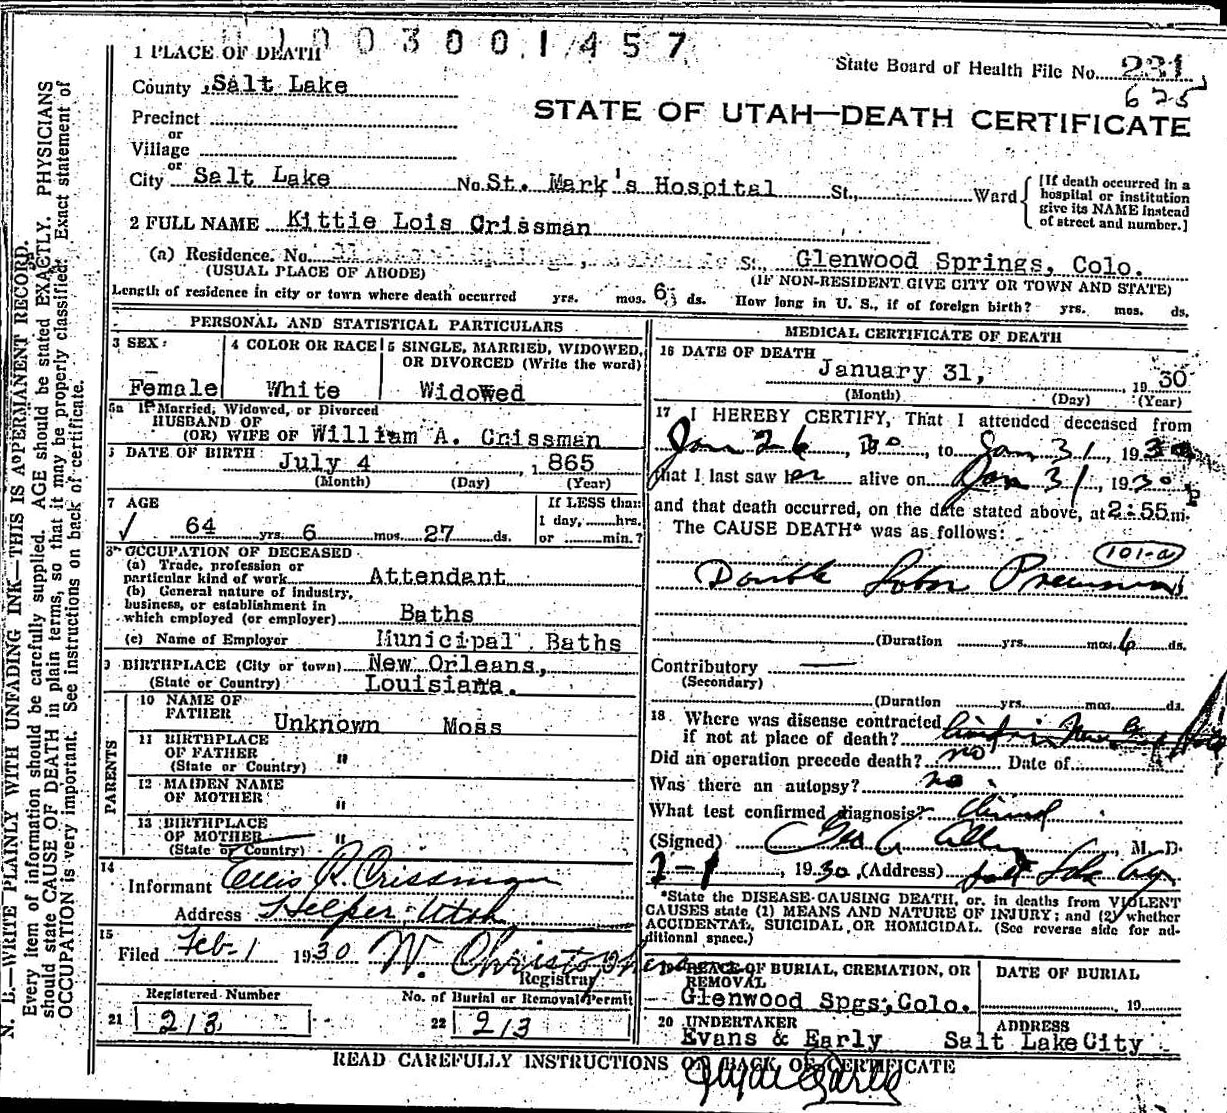 1003001457
1 PLACE OF DEATH
State Board of Health File No. 231
625
County Salt Lake
STATE OF UTAH—DEATH CERTIFICATE
Precinct
or
Village
or
City Salt Lake No. St. Mark's Hospital St., Ward
[If death occurred in a hospital or institution give its NAME instead of street and number.]
2 FULL NAME Kittie Lois Crissman
(a) Residence. No. St. Glenwood Springs, Colo.
(USUAL PLACE OF ABODE) (IF NON-RESIDENT GIVE CITY OR TOWN AND STATE)
Length of residence in city or town where death occurred yrs. mos. 6 ds. How long in U. S., if of foreign birth? yrs. mos. ds.
PERSONAL AND STATISTICAL PARTICULARS
3 SEX: Female
4 COLOR OR RACE White
5 SINGLE, MARRIED, WIDOWED, OR DIVORCED (Write the word) Widowed
5a If Married, Widowed, or Divorced
HUSBAND OF
(OR) WIFE OF William A. Crissman
DATE OF BIRTH July 4, 1865
(Month) (Day) (Year)
7 AGE
64 yrs. 6 mos. 27 ds.
If LESS than
1 day, hrs.
or min.?
8 OCCUPATION OF DECEASED
(a) Trade, profession or
particular kind of work Attendant
(b) General nature of industry,
business, or establishment in
which employed (or employer) Baths
(c) Name of Employer Municipal Baths
9 BIRTHPLACE (City or town) New Orleans,
(State or Country) Louisiana.
PARENTS
10 NAME OF
FATHER Unknown Moss
11 BIRTHPLACE
OF FATHER "
(State or Country)
12 MAIDEN NAME
OF MOTHER "
13 BIRTHPLACE
OF MOTHER "
(State or Country)
14
Informant Ellis R. Crissman
Address Helper Utah
15
Filed Feb-1 1930 W. Christophers
Registrar
Registered Number
21 213
No. of Burial or Removal Permit
22 213
MEDICAL CERTIFICATE OF DEATH
16 DATE OF DEATH
January 31, 1930
(Month) (Day) (Year)
17 I HEREBY CERTIFY, That I attended deceased from
Jan 26, 30, to Jan 31, 1930
that I last saw her alive on Jan 31, 1930
and that death occurred, on the date stated above, at 2:55 P m.
The CAUSE DEATH* was as follows:
101-a
Double Lobar Pneumonia
(Duration yrs. mos. 6 ds.
Contributory
(Secondary)
(Duration yrs. mos. ds.
18 Where was disease contracted
if not at place of death?
Did an operation precede death? no Date of
Was there an autopsy? no
What test confirmed diagnosis? Clinical
(Signed) Geo A Allen, M. D.
2-1, 1930 (Address) Salt Lake City
*State the DISEASE CAUSING DEATH, or, in deaths from VIOLENT
CAUSES state (1) MEANS AND NATURE OF INJURY; and (2) whether
ACCIDENTAL, SUICIDAL, OR HOMICIDAL. (See reverse side for ad-
ditional space.)
19 PLACE OF BURIAL, CREMATION, OR
REMOVAL
Glenwood Spgs, Colo.
DATE OF BURIAL
19
20 UNDERTAKER
Evans & Early
ADDRESS
Salt Lake City
READ CAREFULLY INSTRUCTIONS ON BACK OF CERTIFICATE
N. B.—WRITE PLAINLY WITH UNFADING INK—THIS IS A PERMANENT RECORD.
Every item of information should be carefully supplied. AGE should be stated EXACTLY. PHYSICIANS
should state CAUSE OF DEATH in plain terms, so that it may be properly classified. Exact statement of
OCCUPATION is very important. See instructions on back of certificate.